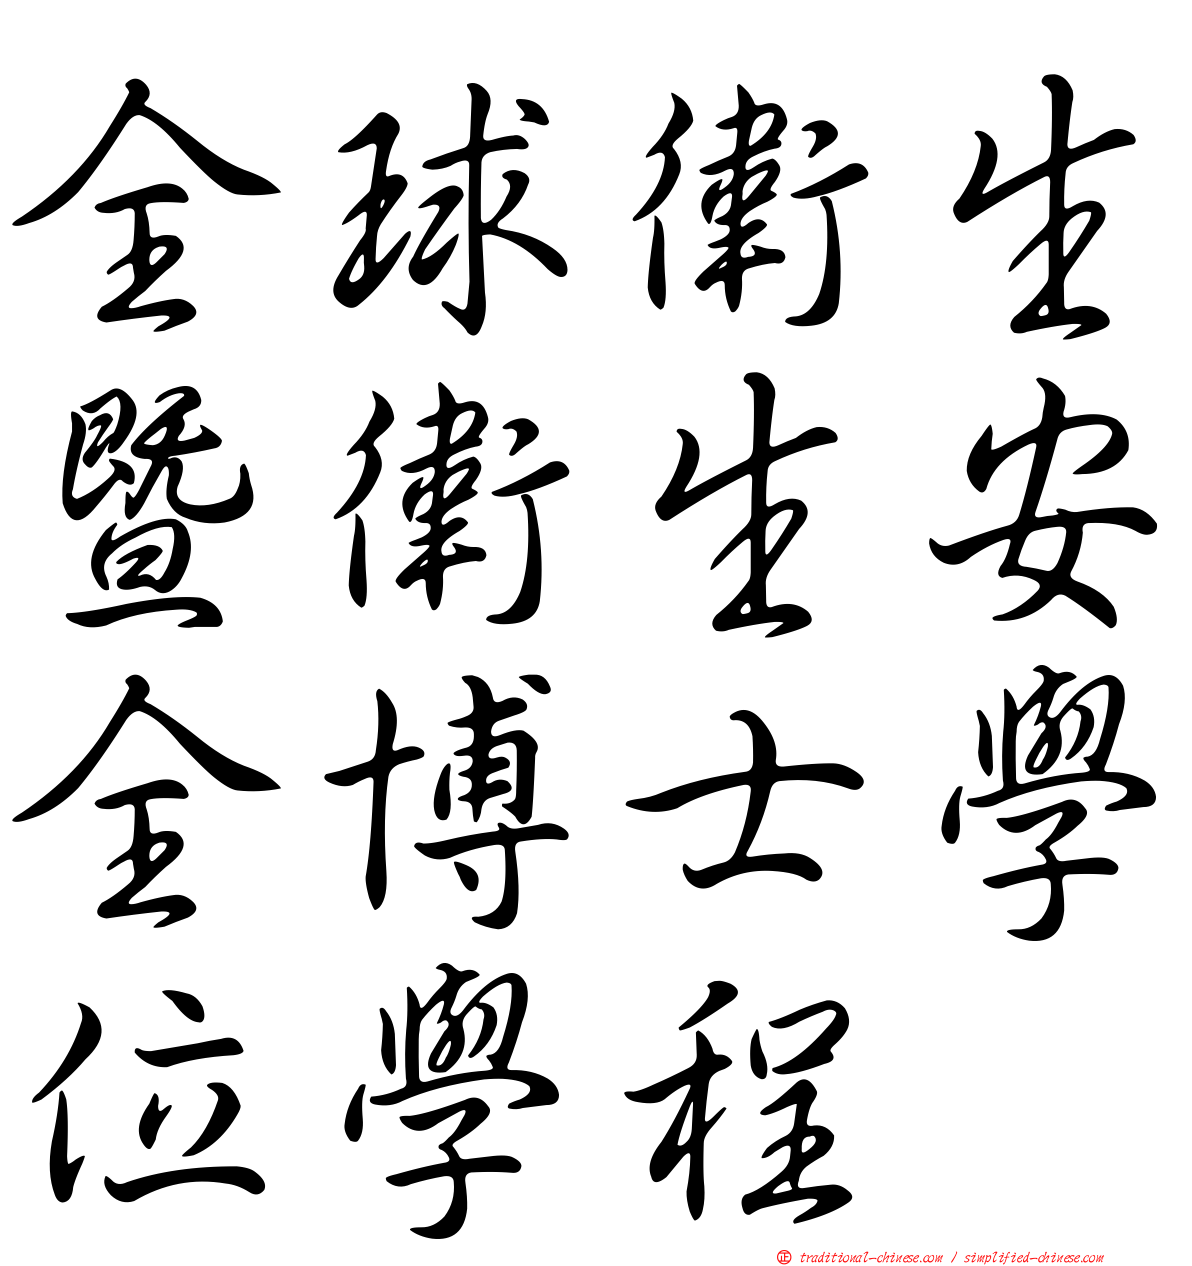 全球衛生
暨衛生安
全博士學
位學程
㊣ traditional-chinese.com / simplified-chinese.com